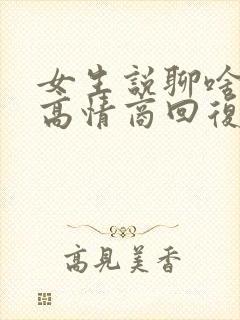 女生説聊啥
高情商回復
高見美香